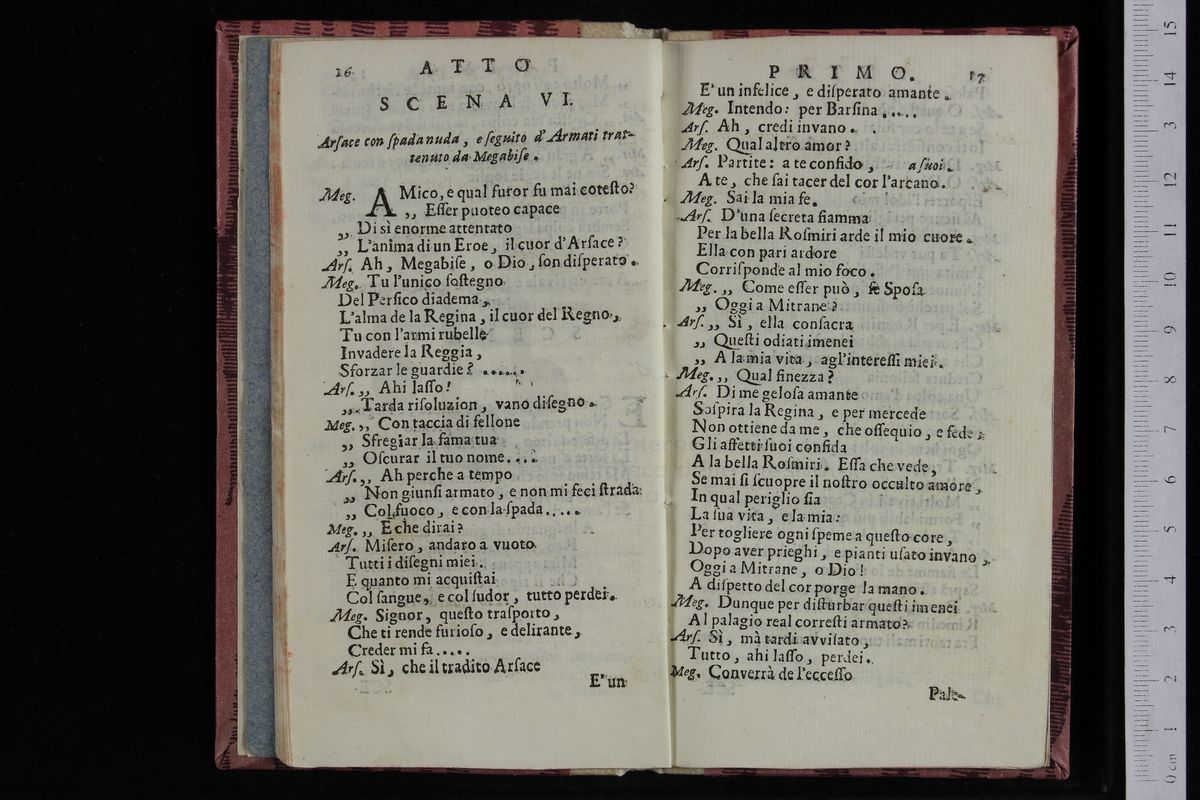 16 ATTO
SCENA VI.
Arſace con ſpada nuda, e ſeguito d'Armati trat-
tenuto da Megabiſe.
Meg. AMico, e qual furor fu mai coteſto?
„ Eſſer puoteo capace
„ Di sì enorme attentato
„ L'anima di un Eroe, il cuor d'Arſace?
Arſ. Ah, Megabiſe, o Dio, ſon diſperato.
Meg. Tu l'unico ſoſtegno
Del Perſico diadema,
L'alma de la Regina, il cuor del Regno,
Tu con l'armi rubelle
Invadere la Reggia,
Sforzar le guardie? ......
Arſ. „ Ahi laſſo!
„ Tarda riſoluzion, vano diſegno.
Meg. „ Con taccia di fellone
„ Sfregiar la fama tua
„ Oſcurar il tuo nome....
Arſ. „ Ah perche a tempo
„ Non giunſi armato, e non mi feci ſtrada
„ Col fuoco, e con la ſpada.....
Meg. „ E che dirai?
Arſ. Miſero, andaro a vuoto
Tutti i diſegni miei.
E quanto mi acquiſtai
Col ſangue, e col ſudor, tutto perdei.
Meg. Signor, queſto traſporto,
Che ti rende furioſo, e delirante,
Creder mi fa.....
Arſ. Sì, che il tradito Arſace
E' un
PRIMO. 17
E' un infelice, e diſperato amante.
Meg. Intendo: per Barſina.....
Arſ. Ah, credi invano.
Meg. Qual altro amor?
Arſ. Partite: a te confido, a ſuoi.
A te, che ſai tacer del cor l'arcano.
Meg. Sai la mia fe.
Arſ. D'una ſecreta fiamma
Per la bella Roſmiri arde il mio cuore.
Ella con pari ardore
Corriſponde al mio foco.
Meg. „ Come eſſer può, ſe Spoſa
„ Oggi a Mitrane?
Arſ. „ Sì, ella conſacra
„ Queſti odiati imenei
„ A la mia vita, agl'intereſſi miei.
Meg. „ Qual finezza?
Arſ. Di me geloſa amante
Soſpira la Regina, e per mercede
Non ottiene da me, che oſſequio, e fede;
Gli affetti ſuoi confida
A la bella Roſmiri. Eſſa che vede,
Se mai ſi ſcuopre il noſtro occulto amore,
In qual periglio ſia
La ſua vita, e la mia:
Per togliere ogni ſpeme a queſto core,
Dopo aver prieghi, e pianti uſato invano,
Oggi a Mitrane, o Dio!
A diſpetto del cor porge la mano.
Meg. Dunque per diſturbar queſti imenei
Al palagio real correſti armato?
Arſ. Sì, mà tardi avviſato,
Tutto, ahi laſſo, perdei.
Meg. Converrà de l'ecceſſo
Pale-